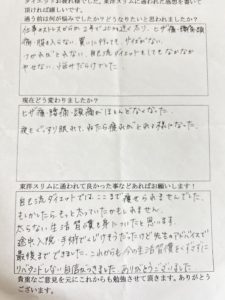 ダイエットお疲れ様でした。東洋スリムに通われた感想を書いて
頂ければ嬉しいです。
通う前は何が悩みでしたか？どうなりたいと思われましたか？
仕事のストレスからか 2年で20kg近く太り、ヒザ痛・腰痛・頭
痛・服も入らない 買いに行っても サイズがない
つかれがとれない 自己流ダイエットをしてもなかなか
やせない、
現在どう変わりましたか？
ヒザ痛・腰痛・頭痛がほとんどなくなった
夜もぐっすり眠れて、ねたら疲れがとれる様になった。
東洋スリムに通われて良かった事などあればお願いします！
自己流ダイエットではここまで痩せられませんでした、
もしかしたらもっと太っていたかもしれません。
太らない生活習慣も身についたと思います。
途中入院・手術でくじけそうだったけど先生のアドバイスで
最後までできました。これからも今の生活習慣をくずさずに
リバウンドしない自信がつきました ありがとうございました
貴重なご意見を元にこれからも勉強させて頂きます。ありがとう
ございます。